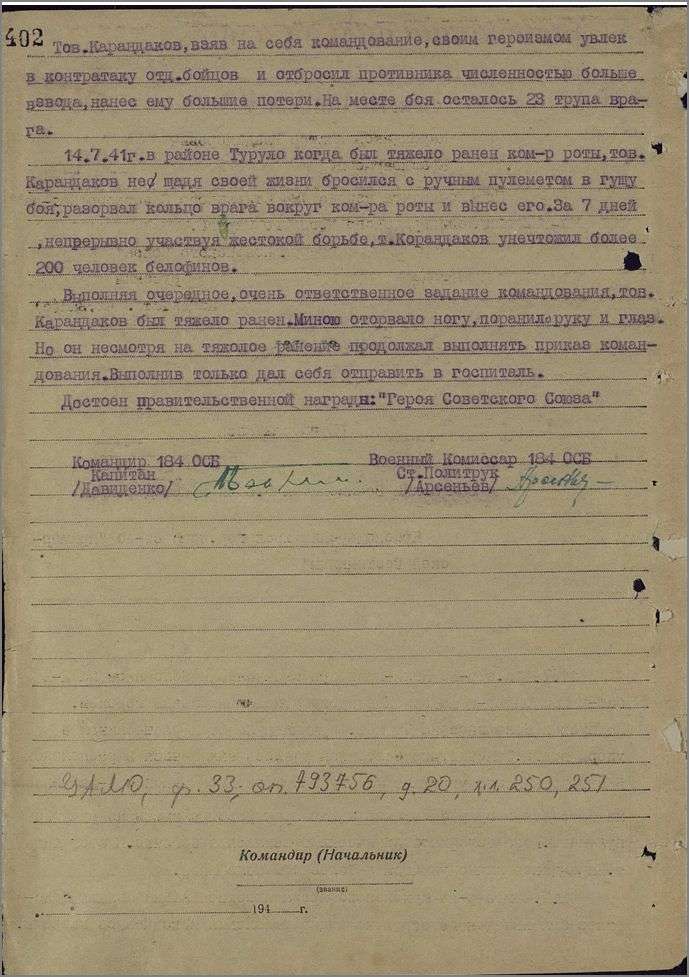 402
Тов.Карандаков,взяв на себя командование,своим героизмом увлек
в контратаку отд.бойцов и отбросил противника численностью больше
взвода,нанес ему большие потери.На месте боя осталось 23 трупа,вра-
га.
14.7.41г.в районе Туруло когда был тяжело ранен ком-р роты,тов.
Карандаков не щадя своей жизни бросился с ручным пулеметом в гущу
боя,разорвал кольцо врага вокруг ком-ра роты и вынес его.За 7 дней
,непрерывно участвуя жестокой борьбе,т.Корандаков унечтожил более
200 человек белофинов.
Выполняя очередное,очень ответственное задание командования,тов.
Карандаков был тяжело ранен.Миною оторвало ногу,поранило руку и глаз.
Но он несмотря на тяжолое ранение продолжал выполнять приказ коман-
дования.Выполнив только дал себя отправить в госпиталь.
Достоен правительственной награды:"Героя Советского Союза"
Командир 184 ОСБ Военный Комиссар 184 ОСБ
Капитан Ст.Политрук
/Давиденко/ /Арсеньев/
ЦАМО, ф. 33, оп. 793756, д. 20, л.л. 250, 251
Командир (Начальник)
(звание)
194 г.